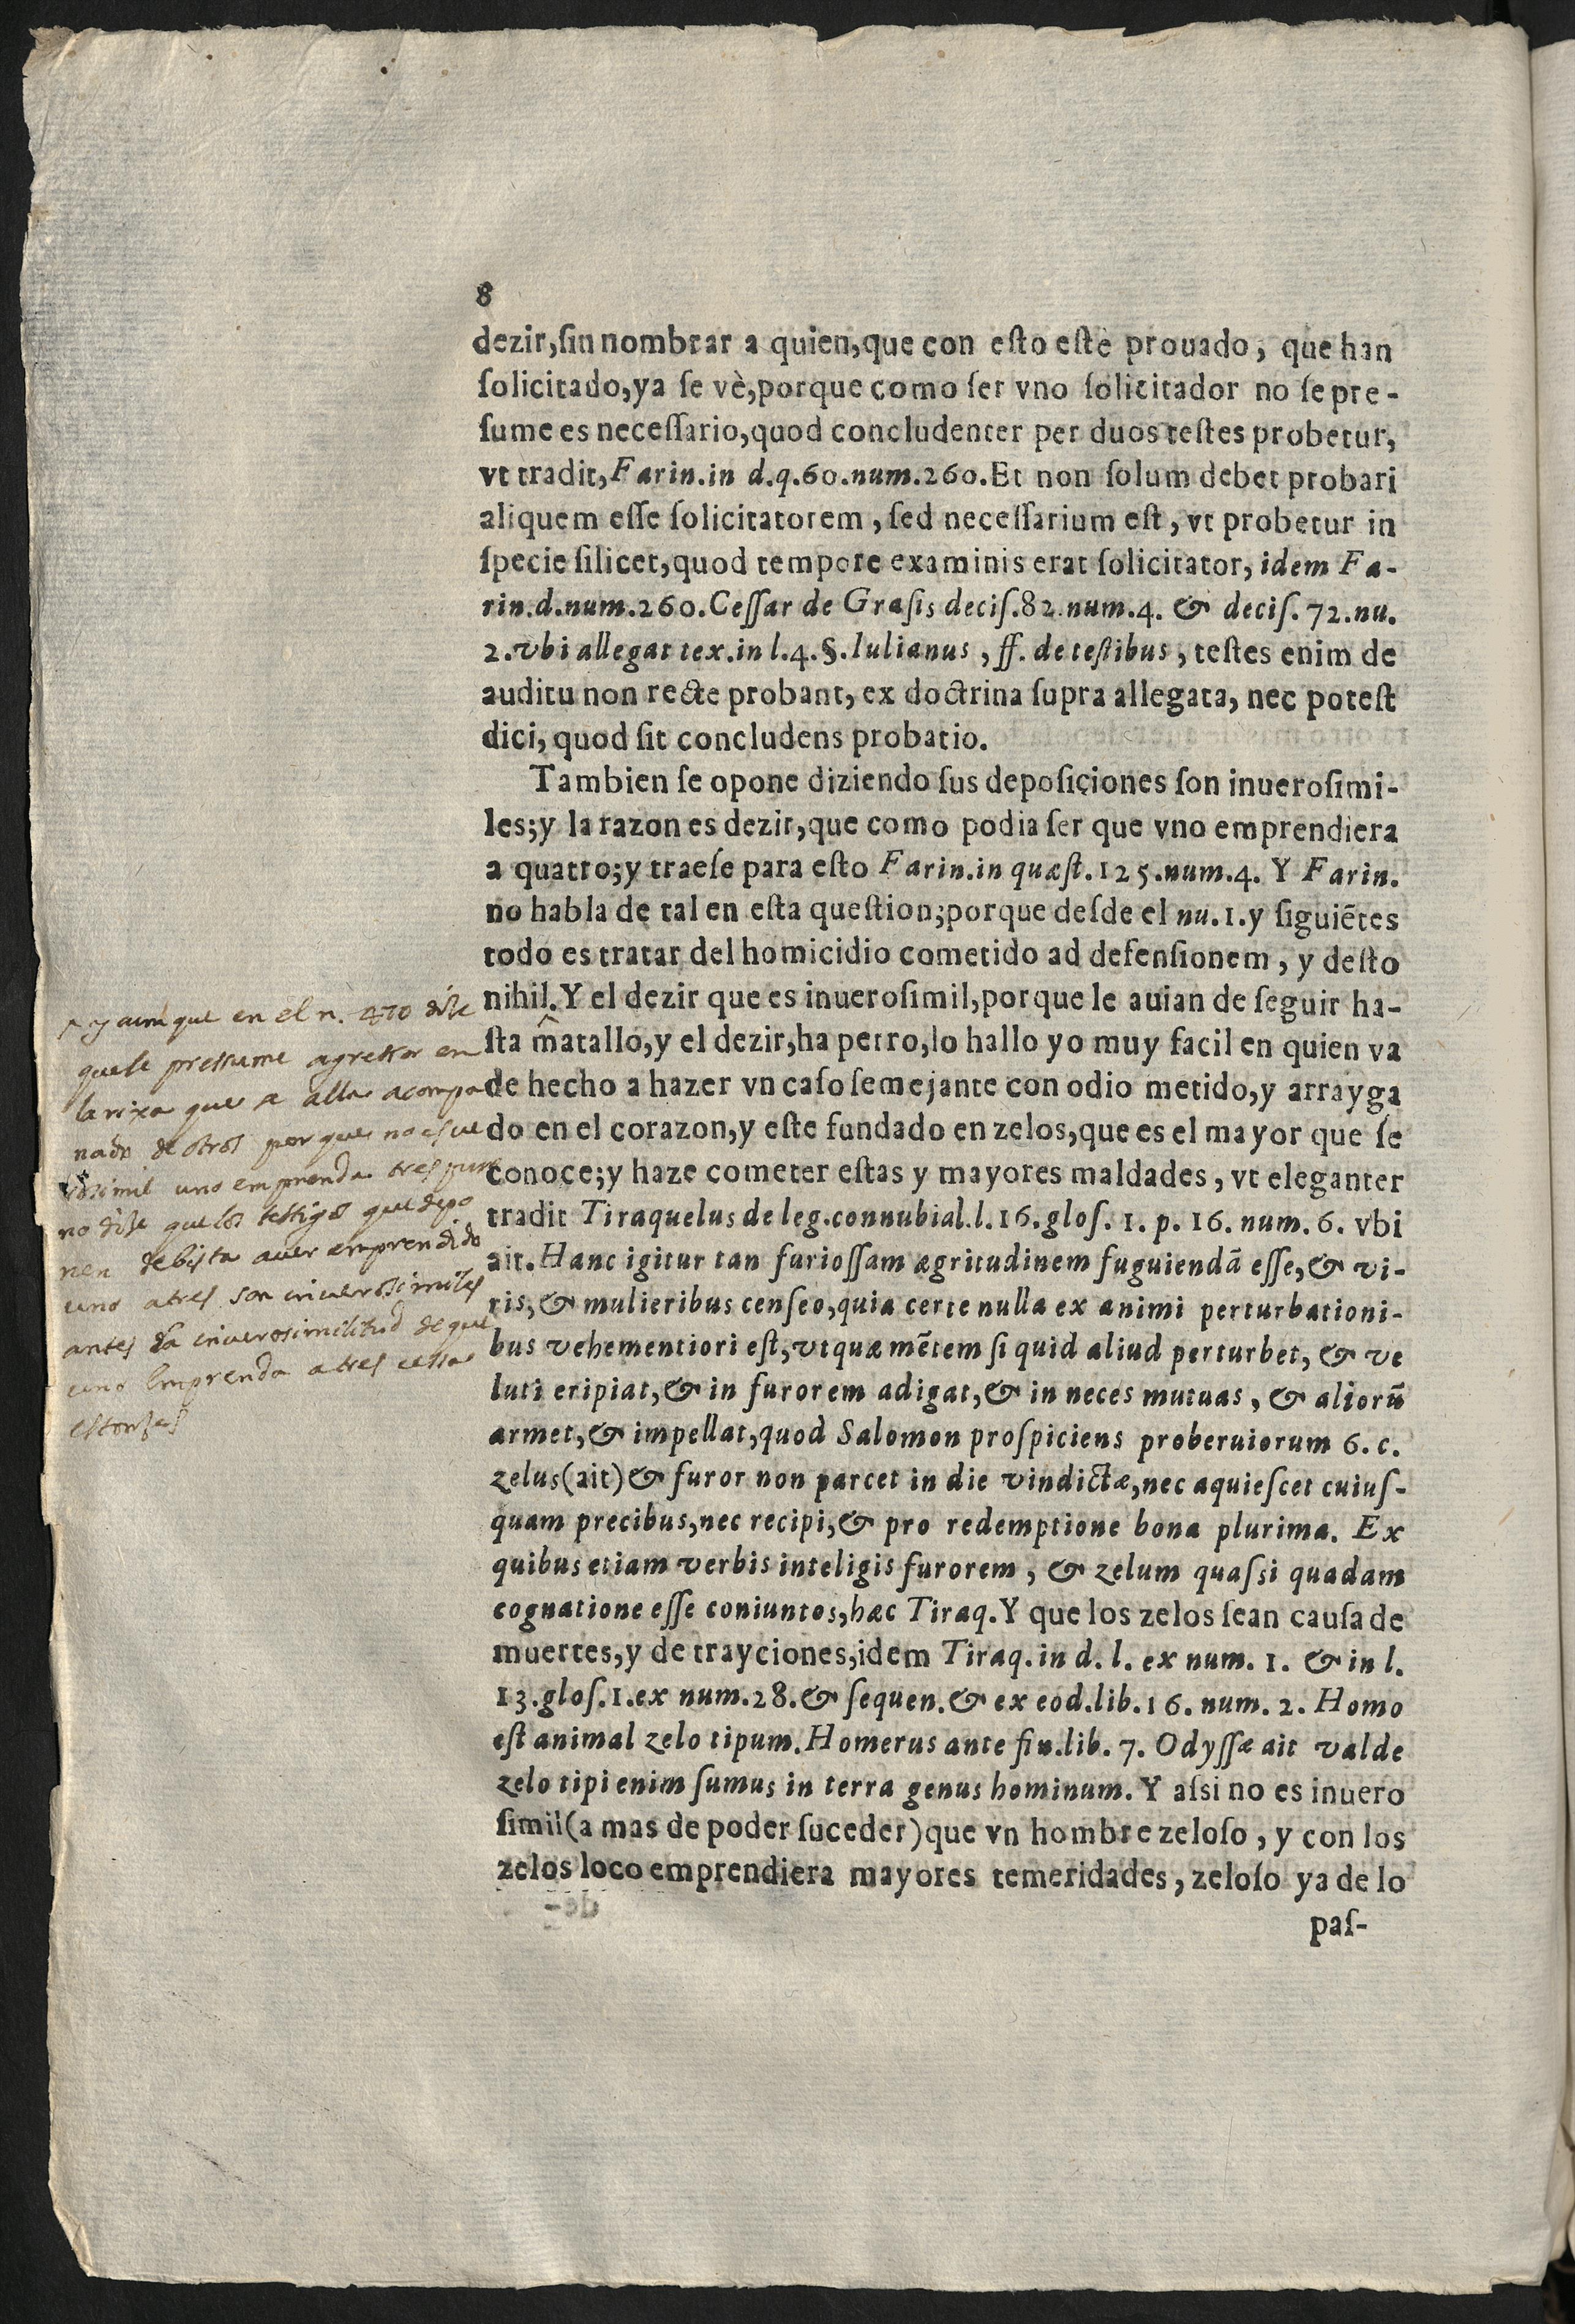 8
dezir,ſin nombrar a quien,que con eſto eſtè prouado, que han
ſolicitado,ya ſe vè,porque como ſer vno ſolicitador no ſe pre-
ſume es neceſſario,quod concludenter per duos teſtes probetur,
vt tradit,Farin.in d.q.60.num.260.Et non ſolum debet probari
aliquem eſſe ſolicitatorem, ſed neceſſarium eſt, vt probetur in
ſpecie ſilicet,quod tempore examinis erat ſolicitator, idem Fa-
rin.d.num.260.Ceſſar de Graſis deciſ.82.num.4. & deciſ.72.nu.
2.vbi allegat tex.in l.4.§.Iulianus, ff. de teſtibus, teſtes enim de
auditu non recte probant, ex doctrina ſupra allegata, nec poteſt
dici, quod ſit concludens probatio.
Tambien ſe opone diziendo ſus depoſiçiones ſon inueroſimi-
les;y la razon es dezir,que como podia ſer que vno emprendiera
a quatro;y traeſe para eſto Farin.in quæſt.125.num.4. Y Farin.
no habla de tal en eſta queſtion;porque deſde el nu.1.y ſiguiẽtes
todo es tratar del homicidio cometido ad defenſionem, y deſto
nihil.^Y el dezir que es inueroſimil,porque le auian de ſeguir ha-
ſta matallo,y el dezir,ha perro,lo hallo yo muy facil en quien va
de hecho a hazer vn caſo ſemejante con odio metido,y arrayga
do en el corazon,y eſte fundado en zelos,que es el mayor que ſe
conoce;y haze cometer eſtas y mayores maldades, vt eleganter
tradit Tiraquelus de leg.connubial.l.16.gloſ. 1. p. 16. num. 6. vbi
ait. Hanc igitur tan furioſſam ægritudinem fuguiendã eſſe,& vi-
ris,& mulieribus cenſeo,quia certe nulla ex animi perturbationi-
bus vehementiori eſt,vt quæ mẽtem ſi quid aliud perturbet, & ve
luti eripiat,& in furorem adigat,& in neces mutuas, & aliorũ
armet,& impellat,quod Salomon proſpiciens proberuiorum 6. c.
zelus(ait)& furor non parcet in die vindictæ,nec aquieſcet cuiuſ-
quam precibus,nec recipi,& pro redemptione bona plurima. Ex
quibus etiam verbis inteligis furorem, & zelum quaſsi quadam
cognatione eſſe coniuntos,hæc Tiraq.Y que los zelos ſean cauſa de
muertes,y de trayciones,idem Tiraq.in d. l. ex num. 1. & in l.
13.gloſ.1.ex num.28.& ſequen.& ex eod.lib.16. num. 2. Homo
eſt animal zelo tipum.Homerus ante fin.lib. 7. Odyſſæ ait valde
zelo tipi enim ſumus in terra genus hominum. Y aſsi no es inuero
ſimil(a mas de poder ſuceder)que vn hombre zeloſo, y con los
zelos loco emprendiera mayores temeridades, zeloſo ya de lo
paſ-
^ y aunque en el n. 470 dize
que se pressume agressor en
la rixa que se alla acompa
nado de otros porque no es ve
rosimil uno emprenda tres pero
no dize que los testigos que depo
nen de bista aver emprendido
uno a tres son inverosimiles
antes la inverosimilitud de que
uno emprenda a tres cessa
estonzes